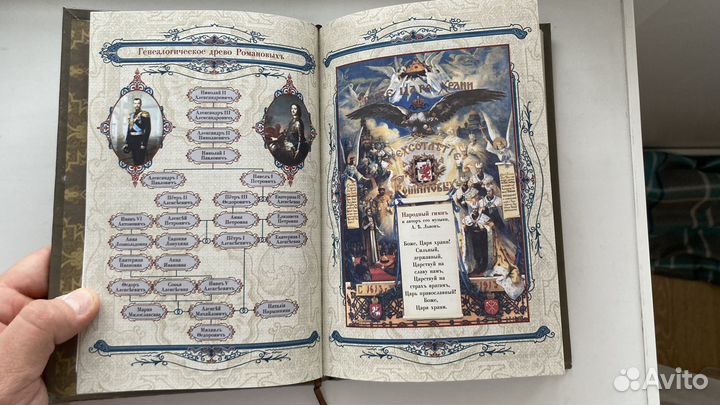 Генеалогическое древо Романовыхъ
Николай II
Александровичъ
Александръ III
Александровичъ
Александръ II
Николаевичъ
Николай I
Павловичъ
Александръ I
Павловичъ
Павелъ I
Петровичъ
Пётръ II
Алексѣевичъ
Пётръ III
Ѳеодоровичъ
Екатерина II
Алексѣевна
Иванъ VI
Антоновичъ
Алексѣй
Петровичъ
Анна
Петровна
Елизавета
Петровна
Анна
Леопольдовна
Евдокия
Лопухина
Пётръ I
Алексѣевичъ
Екатерина I
Алексѣевна
Екатерина
Ивановна
Анна
Ивановна
Ѳедоръ
Алексѣевичъ
Софья
Алексѣевна
Иванъ V
Алексѣевичъ
Мария
Милославская
Алексѣй
Михайловичъ
Наталия
Нарышкина
Михаилъ
Ѳедоровичъ
Царя Храни
Народный гимнъ
и авторъ его музыки,
А. Ѳ. Львовъ.
Боже, Царя храни!
Сильный,
державный,
Царствуй на
славу намъ,
Царствуй на
страхъ врагамъ,
Царь православный!
Боже,
Царя храни.
1613
1913
Avito